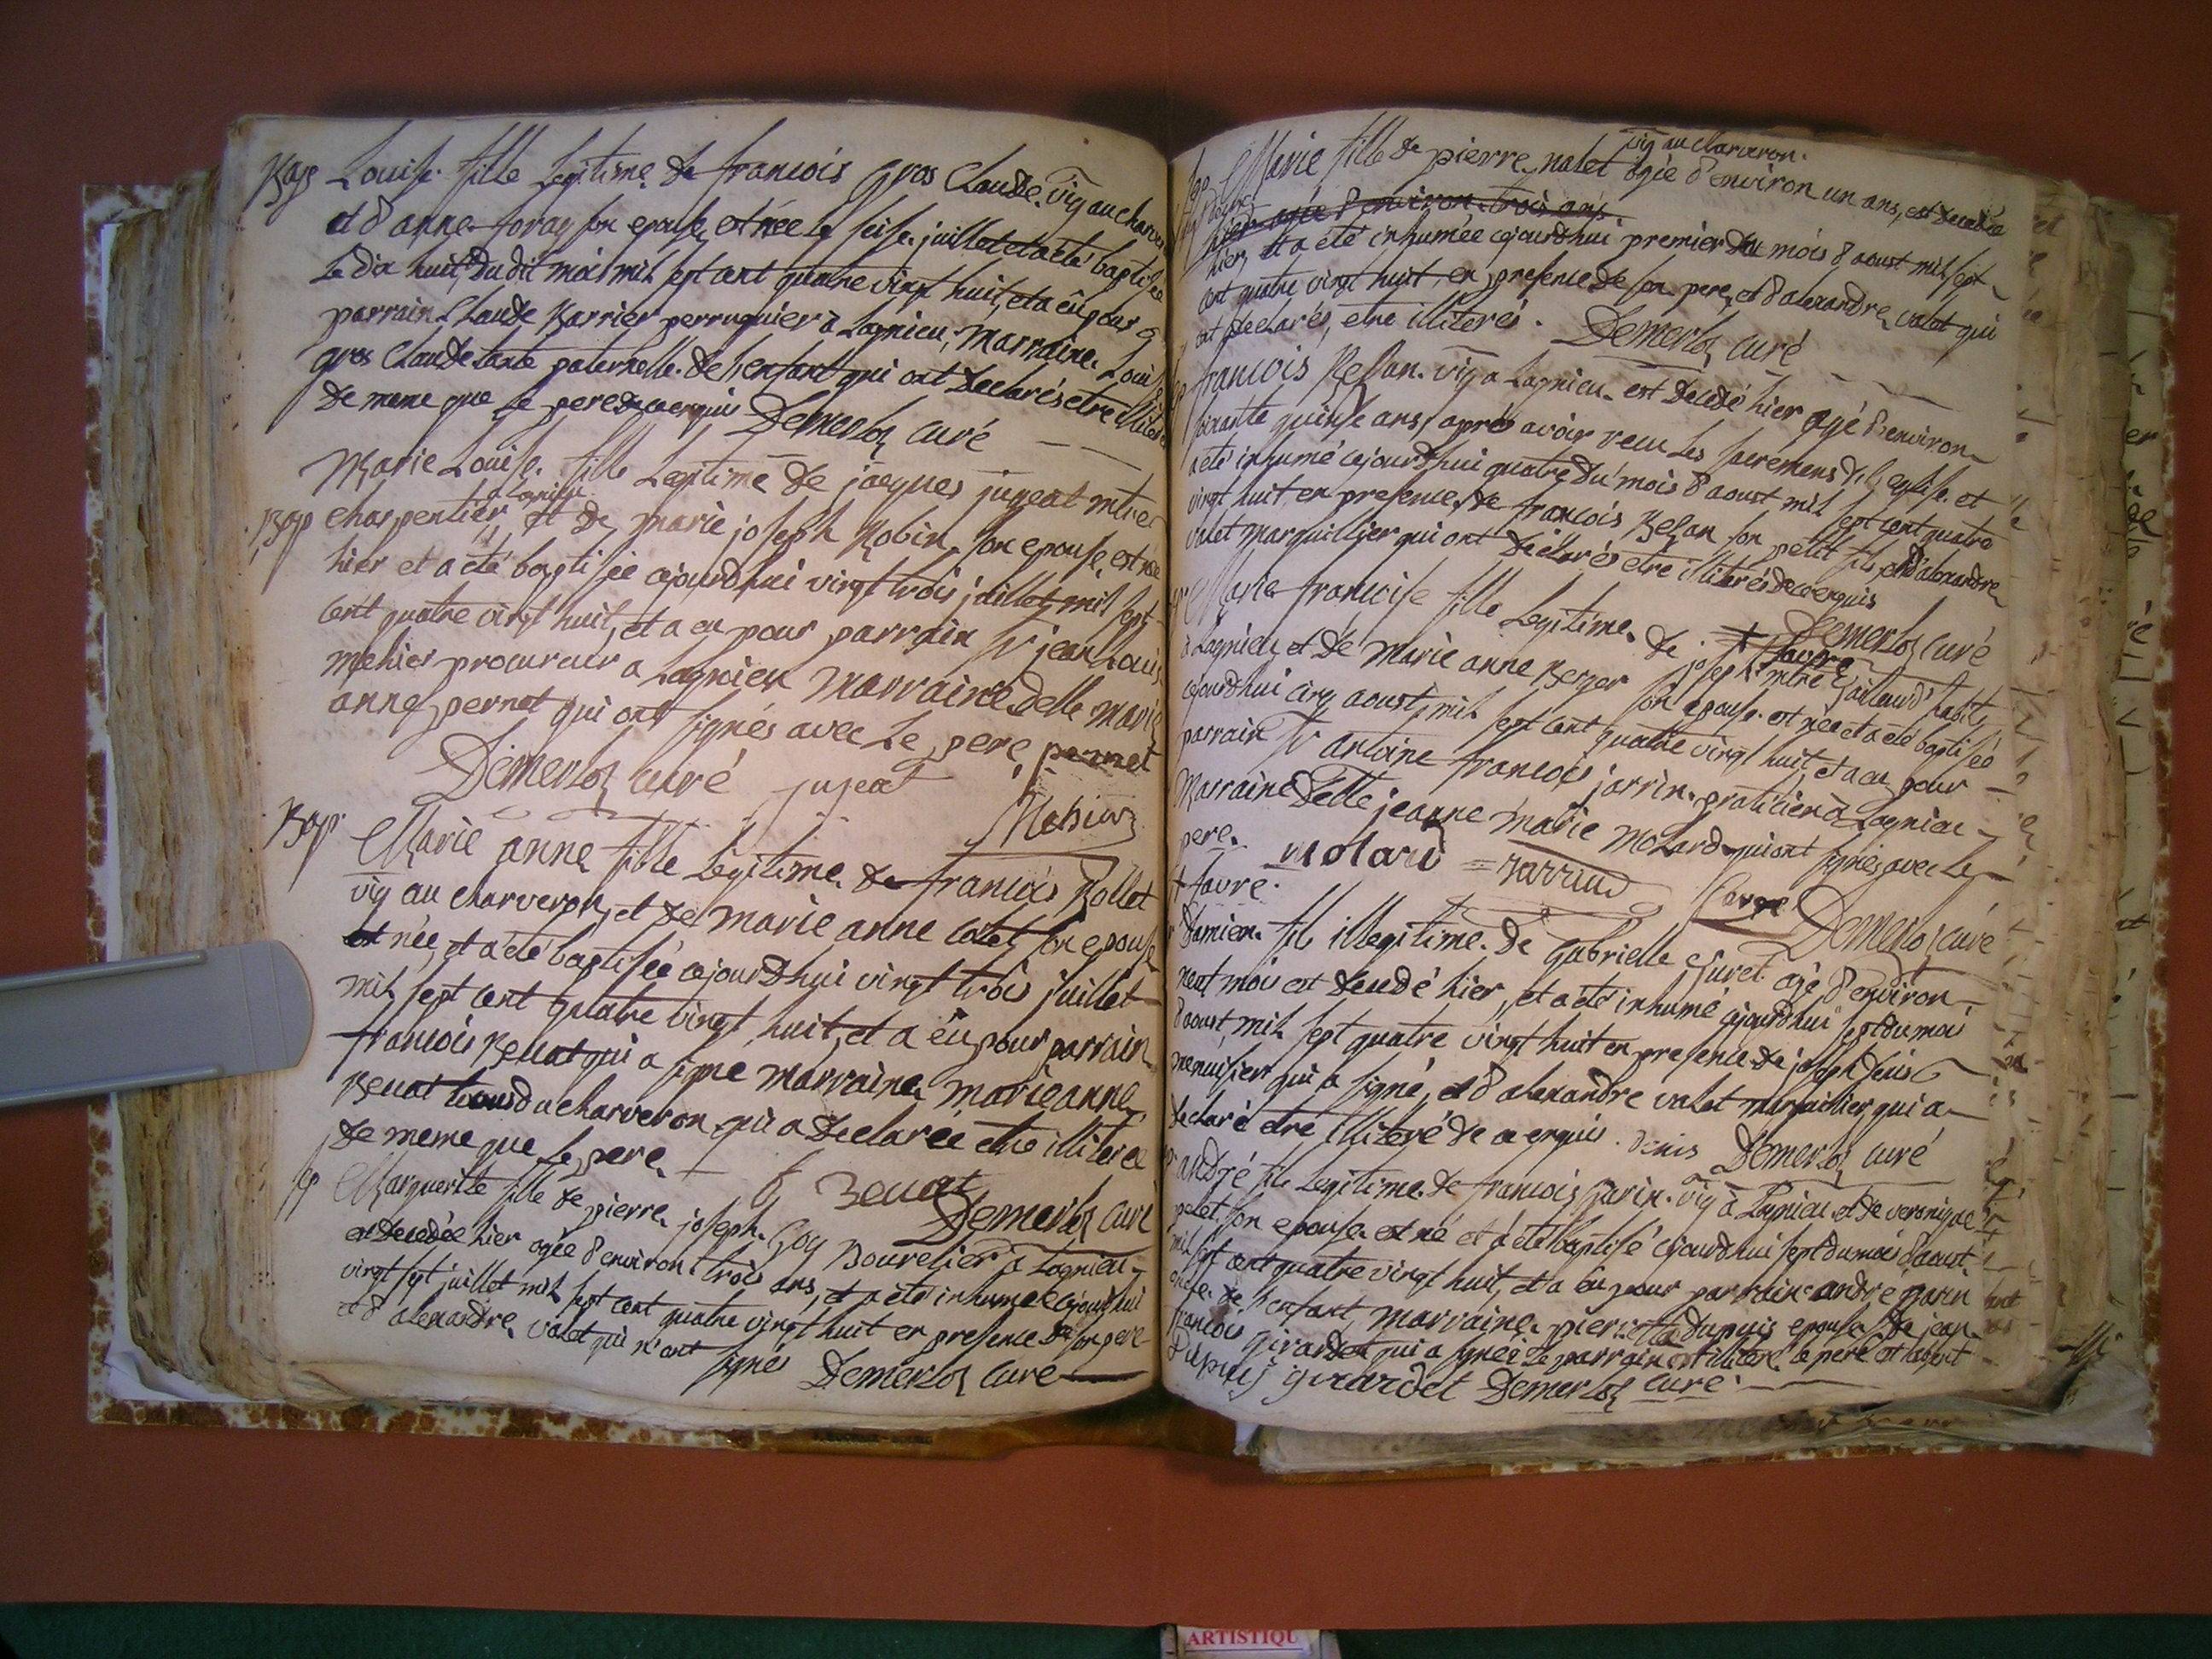 Bap Louise fille Legitime de francois Gros Claude vig au charver
et d'anne foray son epouse est née le seise juillet et a été baptisée
Le dix huit du dit mois mil sept cent quatre vingt huit, et a êu pour
parrain Claude Barrier perruquier a Lagnieu, Marraine Louise
gros Claude tante paternelle de l'enfant qui ont declarés etre illiteré
de meme que le pere de ce enquis Demerloz curé
Marie Louise fille Legitime de jacques jugeat mtre
Bap charpentier a Lagnieu et de marie joseph Robin son epouse est née
hier et a été baptisée cejourdhui vingt trois juillet mil sept
cent quatre vingt huit, et a eu pour parrain Sr jean Louis
mehier procureur a Lagnieu Marraine Delle Marie
anne pernet qui ont signés avec Le pere pernet
Demerloz curé jujeat
Mehier
Bap Marie anne fille Legitime de francois Rollet
vig au charveron, et de marie anne colet son epouse
est née, et a été baptisée cejourdhui vingt trois juillet
mil sept cent quatre vingt huit, et a êu pour parrain
francois Benat qui a signé marraine marieanne
Benat tous du charveron qui a declarée etre illiterée
de meme que Le pere. f Benat
Demerloz curé
Marguerite fille de pierre joseph Goy Bourelier a Lagnieu
est decedée hier agée d'environ trois ans, et a été inhumée cejourdhui
vingt sept juillet mil sept cent quatre vingt huit en presence de son pere
et d'alexandre valet qui n'ont signés Demerloz curé
vig au charveron.
Marie fille de pierre nalet agée d'environ un ans, est decedée
hier agée d'environ trois ans.
hier, et a été inhumée cejourdhui premier du mois d'aoust mil sept
cent quatre vingt huit en presence de son pere, et d'alexandre valet qui
ont declarés etre illiterés. Demerloz curé
francois Besan vig a Lagnieu est decedé hier agé d'environ
soixante quinse ans, aprés avoir recu Les sacremens de L'eglise et
a été inhumé cejourdhui quatre du mois d'aoust mil sept cent quatre
vingt huit en presence de francois Besan son petit fils, et d'alexandre
valet marguillier qui ont declarés etre illiterés de ce enquis
Demerloz curé
Marie francoise fille Legitime de joseph + favre mtre Gaillard habitt
à Lagnieu et de Marie anne Berger son epouse est née et a été baptisée
cejourdhui cinq aoust mil sept cent quatre vingt huit, et a eu pour
parrain Sr antoine francois jarrin praticien à Lagnieu
Marraine Delle jeanne Marie Molard qui ont signés avec Le
pere. molard jarrin favre
+ favre. Demerloz curé
Damien fils illegitime de Gabrielle furet agé d'environ
neuf mois est decedé hier, et a été inhumé cejourdhui sept du mois
d'aoust mil sept quatre vingt huit en presence de joseph denis
menuisier qui a signé, et d'alexandre valet marguillier qui a
declaré etre illiteré de ce enquis. denis Demerloz curé
andré fils Legitime de francois jarin vig à Lagnieu et de veronique
son epouse est né et a été baptisé cejourdhui sept du mois d'aoust
mil sept cent quatre vingt huit, et a êu pour parrain andré jarin
oncle de l'enfant, marraine pierrette dupuis epouse de jean
francois girardet qui a signée Le parrain est illiteré le pere est absent
Dupuis girardet Demerloz curé
ARTISTIQU